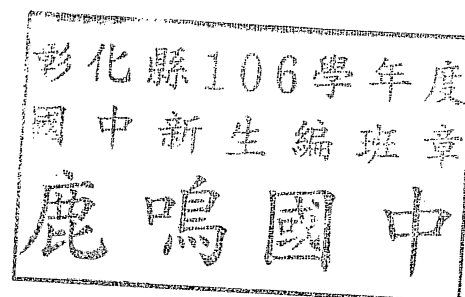 彰化縣106學年度
國中新生編班章
鹿鳴國中